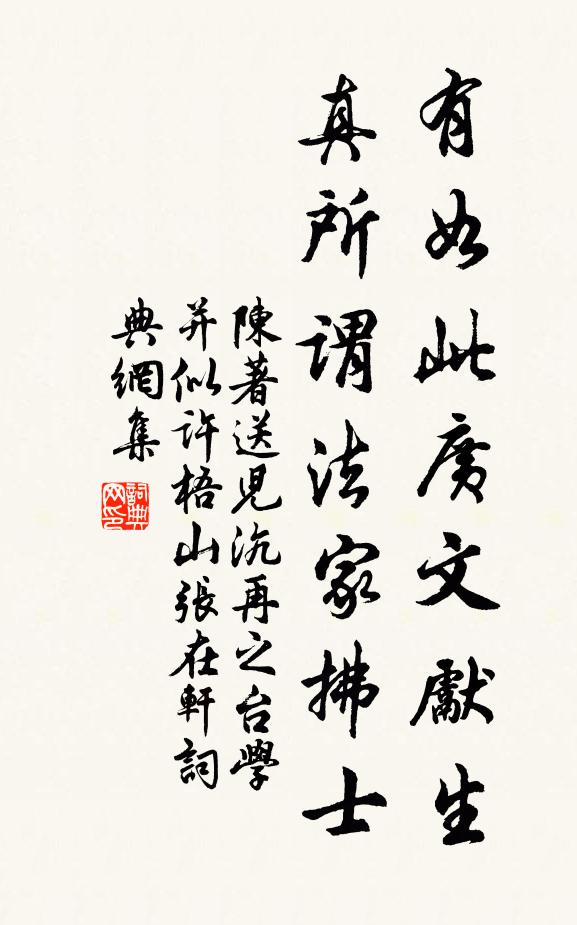 有如此廣文獻生
真所謂法家拂士
陳著送児沆再之台學
并似許梧山張在軒詞
典網集
詞典
网印